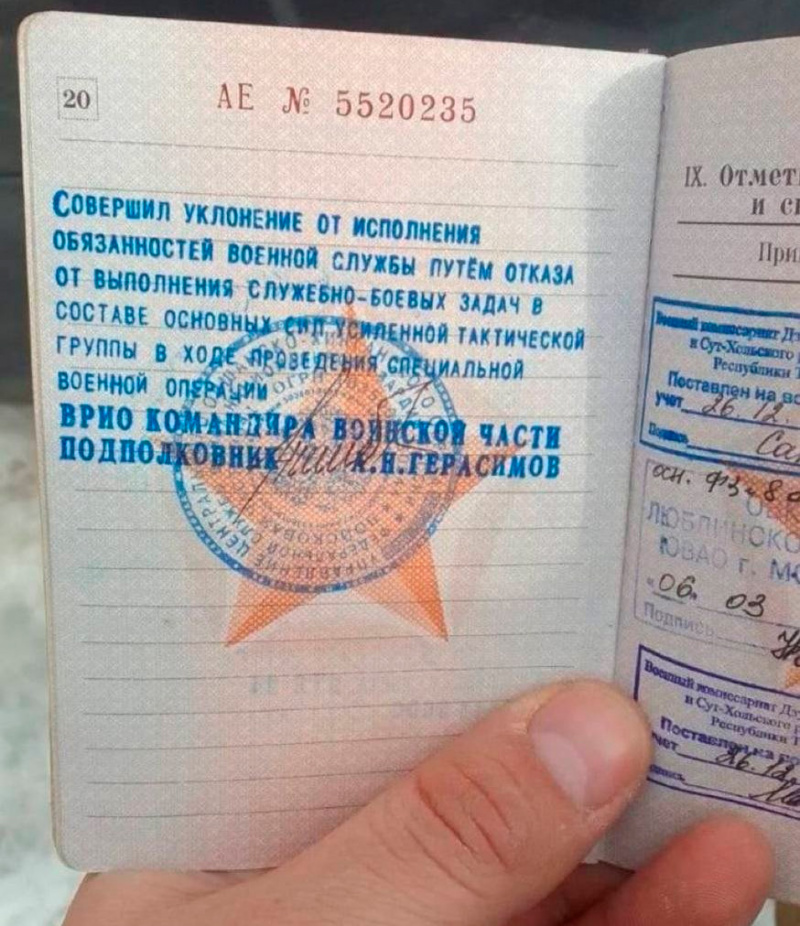 20
АЕ № 5520235
СОВЕРШИЛ УКЛОНЕНИЕ ОТ ИСПОЛНЕНИЯ
ОБЯЗАННОСТЕЙ ВОЕННОЙ СЛУЖБЫ ПУТЁМ ОТКАЗА
ОТ ВЫПОЛНЕНИЯ СЛУЖЕБНО-БОЕВЫХ ЗАДАЧ В
СОСТАВЕ ОСНОВНЫХ СИЛ УСИЛЕННОЙ ТАКТИЧЕСКОЙ
ГРУППЫ В ХОДЕ ПРОВЕДЕНИЯ СПЕЦИАЛЬНОЙ
ВОЕННОЙ ОПЕРАЦИИ
ВРИО КОМАНДИРА ВОИНСКОЙ ЧАСТИ
ПОДПОЛКОВНИК А.Н.ГЕРАСИМОВ
УПРАВЛЕНИЕ ЦЕНТРАЛ
ФЕДЕРАЛЬНОЙ СЛУЖ
ОГРН
IX. Отмет
и с
При
Военный комиссариат Дз
и Сут-Хольского
Республики Т
Поставлен на во
учет 26.12.
Подпись
осн. ФЗ-
ЛЮБЛИНСКО
ЮВАО г. М
"06. 03
Подпись
Военный комиссариат Дз
и Сут-Хольского р
Республики
Поставлен на во
учет 26.12